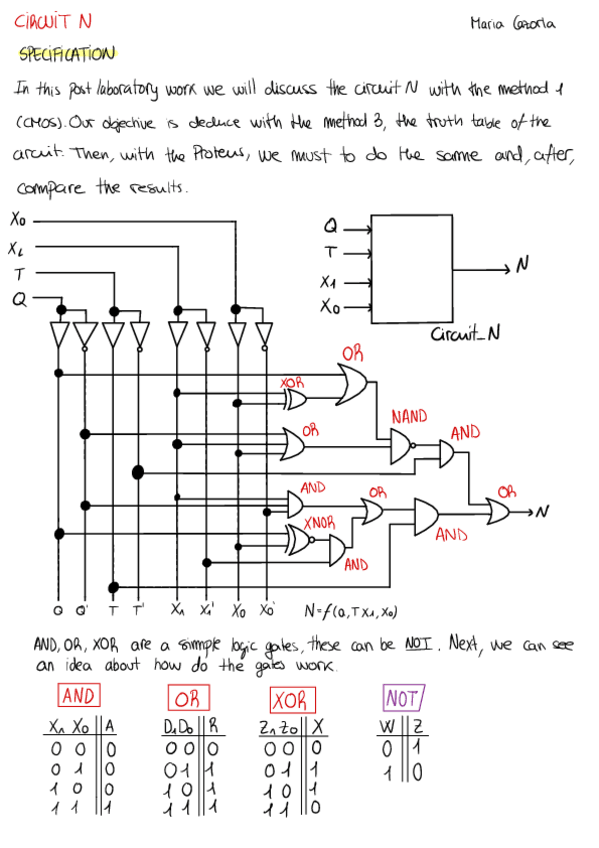 CIRCUIT N
Maria Cazorla
SPECIFICATION
In this post laboratory work we will discuss the circuit N with the method 1
(CMOS). Our objective is deduce with the method 3, the truth table of the
circuit. Then, with the Proteus, we must to do the same and, after,
compare the results.
X0
X1
T
Q
Q
T
X1
X0
N
Circuit_N
OR
XOR
NAND
OR
AND
AND
OR
OR
XNOR
N
AND
AND
Q Q' T T' X1 X1' X0 X0' N=f(Q,T X1,X0)
AND, OR, XOR are a simmple logic gates, these can be NOT. Next, we can see
an idea about how do the gates work.
AND OR XOR NOT
X1 X0 A D1 D0 R Z1 Z0 X W Z
0 0 0 0 0 0 0 0 0 0 1
0 1 0 0 1 1 0 1 1 1 0
1 0 0 1 0 1 1 0 1
1 1 1 1 1 1 1 1 0